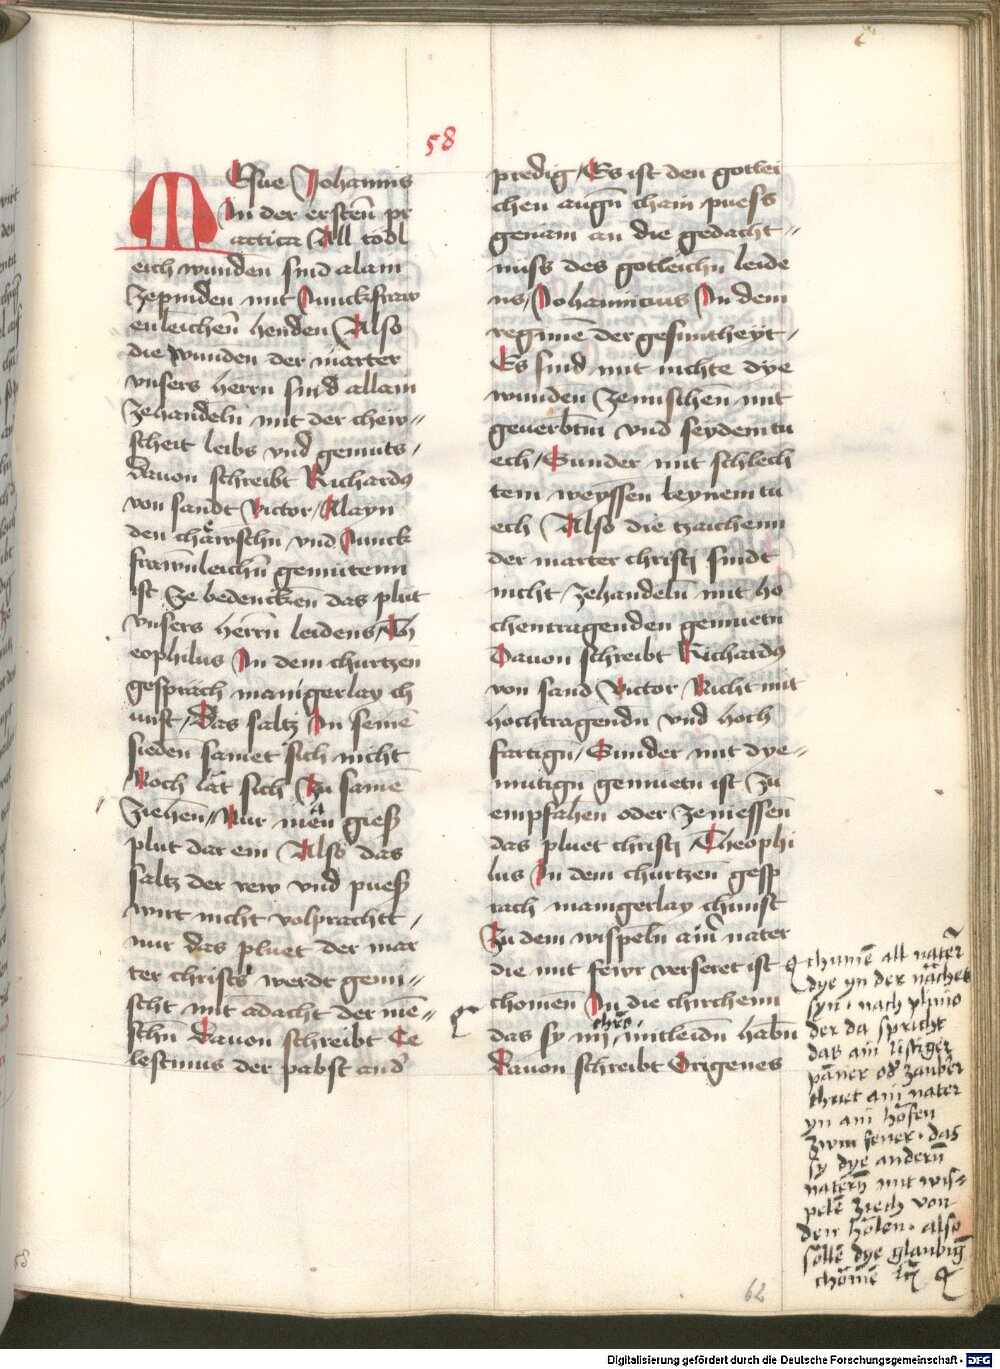 58
MEsue Johannis
In der ersten͂ pr
actica All tödl
eich wunden sind alain
Zepinden mit Junckfraw
enleichen͂ henden Also
die wunden der marter
vnsers herrn sind allain
Zehandeln mit der chew〃
scheit leibs vnd gemuts,
Dauon schreibt Richardꝯ
von sandt Victor / Alayn
den chäwschn̄ vnd Junck
frawnleichn̄ gemütenn
ist ze bedencken͂ das plut
vnsers herrn̄ leidens / Th
eophilus In dem churtzen
gesprach manigerlay ch
unst / Das saltz In seinē
sieden samet sich nicht
Noch lät sich Zu samē
Ziehen〃 Nur men gieſz
plut dar ein Also das
saltz der rew vnd pueſz
wirt nicht volprachtt,
nur das pluet der mar
ter christi werdt gemi〃
scht mit ādacht der mē〃
schn̄ Dauon schreibt Ce
lestinus der pabst and̾
predig / Es ist den gotlei
chen augn̄ chain puess
genam an die gedacht〃
nuss des gotleichn̄ leide
ns / Johannicius In dem
regimē der gesuntheyt,
Es sind mit nichte dye
wunden͂ Zemischen mit
geuerbtm vnd seydem tu
ech / Sunder mit schlech
tem weyssen leynem tu
ech Also die tzaichenn
der marter christi sindt
nicht / zehandeln̄ mit ho
chentragenden gemuetn
Dauon schreibt Richardꝯ
von sand Victor Nicht mit
hochtragendn̄ vnd hoch
fartign̄ / Sunder mit dye〃
mutign̄ gemuetn ist Zu
empfahen oder zeniessen͂
das pluet christi Theophi
lus In dem churtzen͂ gesp
rach manigerlay chunst
Zu dem wispeln̄ ainr̄ nater
die mit fewr verseret ist
chomen͂ In die chirchenn
das sy mit xp̄o mitleidn̄ habn̄
Dauon schreibt Origenes
chumē all nater̄
dye yn der nächet
syn. nach plinio
der da spricht
das ain listiger
päner od̾ zauber̄
thuet ain nater
yn ain höfen
zwm fewer. das
sy dye andern̄
natern̄ mit wis〃
pelē ziech von
den hölen. also
sölle dye glaubiḡ
chömē ꝛc̄
62
58
Digitalisierung gefördert durch die Deutsche Forschungsgemeinschaft - DFG